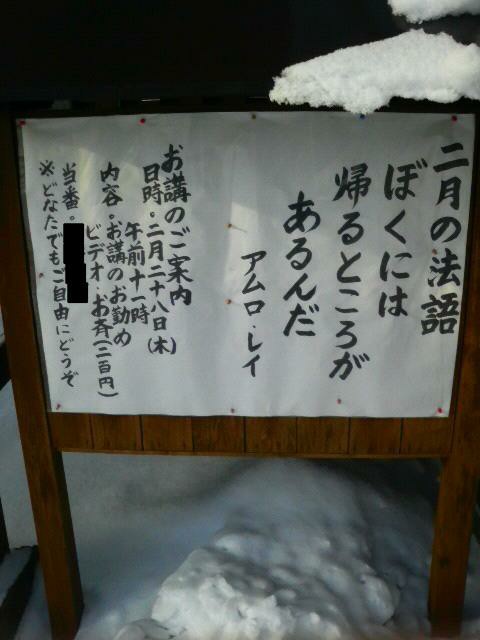 二月の法語
ぼくには
帰るところが
あるんだ
アムロ・レイ
お講のご案内
日時。二月二十八日(木)
午前十一時
内容。お講のお勤め
ビデオ・お斉(二百円)
当番。
※どなたでもご自由にどうぞ